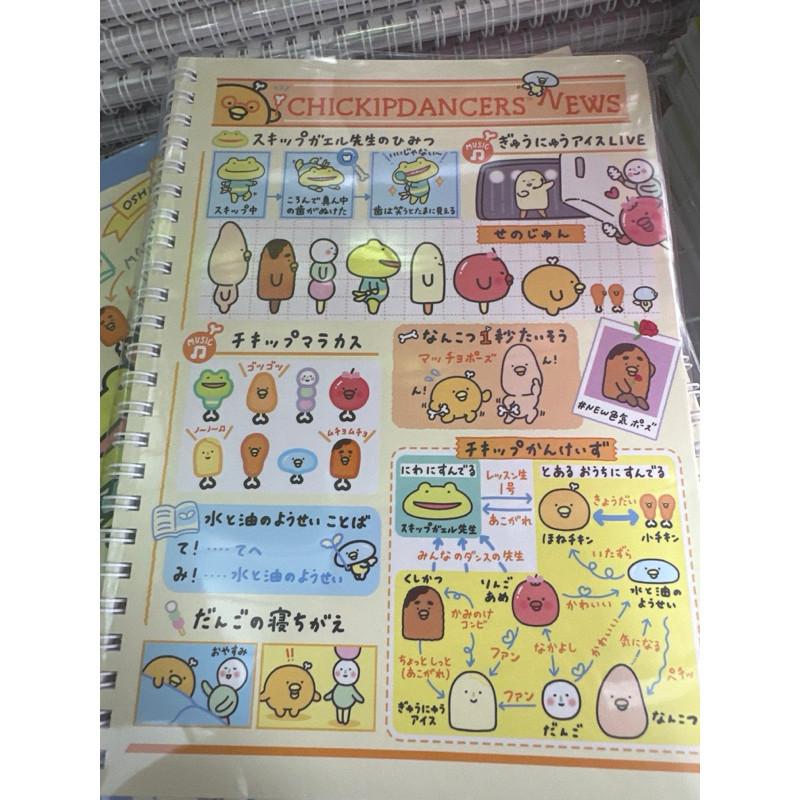 CHICKIPDANCERS NEWS
スキップガエル先生のひみつ
スキップ中
ころんで真ん中
の歯がぬけた
いいじゃない〜
歯は笑うとたまに見える
MUSIC
ぎゅうにゅうアイスLIVE
せのじゅん
MUSIC
チキップマラカス
ゴツゴツ
ノーノー♫
ムチョムチョ
なんこつ1秒たいそう
マッチョポーズ
ん!
ん!
#NEW色気ポーズ
水と油のようせいことば
て!・・・・てへ
み!・・・・水と油のようせい
だんごの寝ちがえ
おやすみ
!!
チキップかんけいず
にわにすんでる
スキップガエル先生
レッスン生
1号
あこがれ
とあるおうちにすんでる
ほねチキン
きょうだい
小チキン
みんなのダンスの先生
いたずら
水と油の
ようせい
くしかつ
かみのけ
コンビ
りんご
あめ
かわいい
ちょっとしっと
(あこがれ)
ファン
なかよし
かわいい
気になる
ペキッ
ぎゅうにゅう
アイス
ファン
だんご
なんこつ
OSH